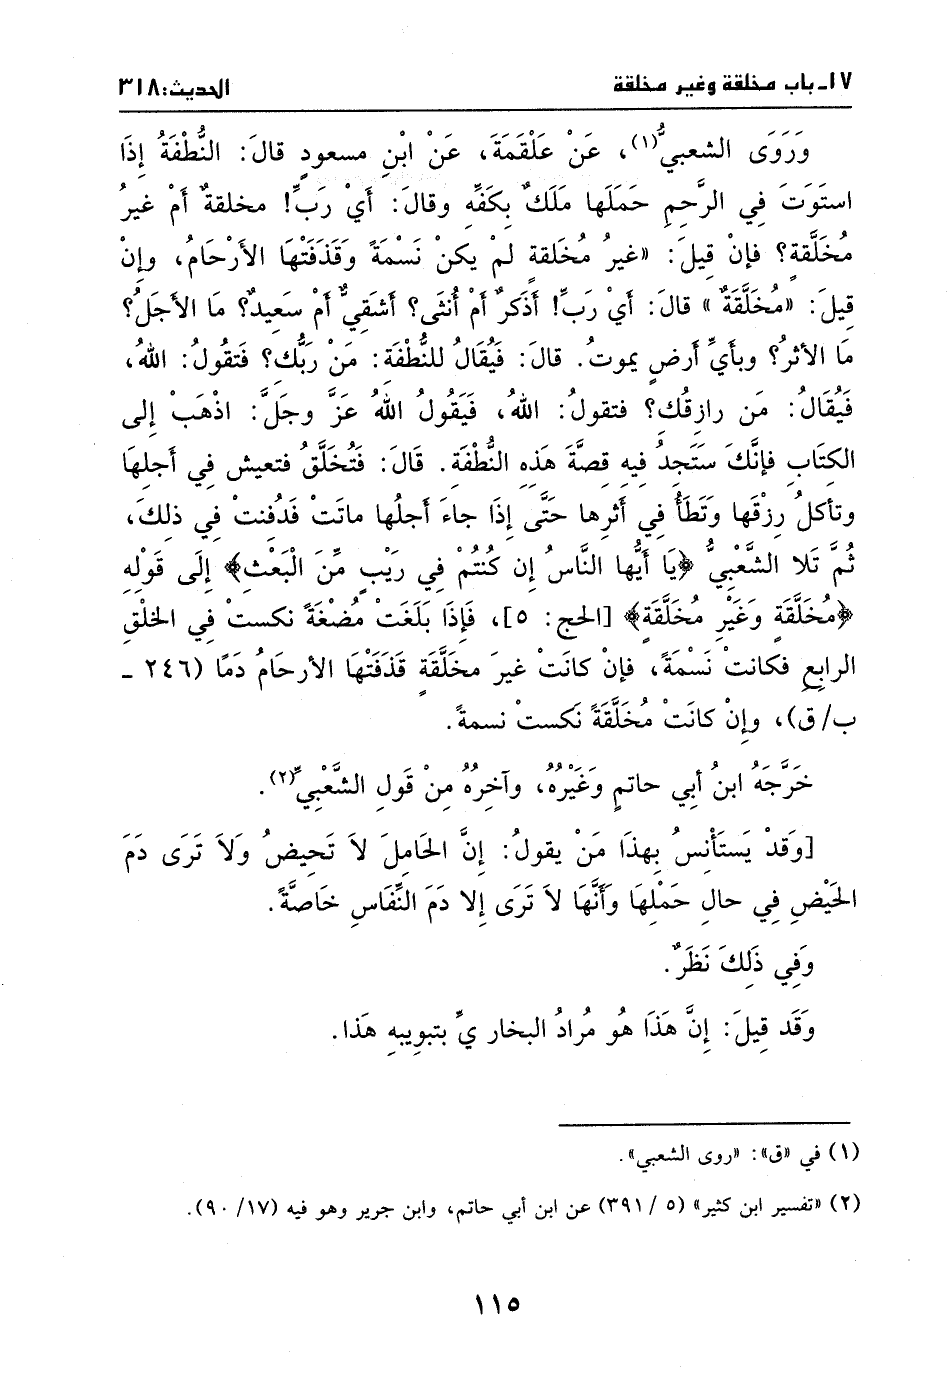 ١٧- باب مخلقة وغير مخلقة الحديث: ٣١٨
وَرَوَى الشعبيُّ(١)، عَنْ عَلْقَمَةَ، عَنْ ابْنِ مسعودٍ قالَ: النُّطْفَةُ إِذَا
استَوَتَ فِي الرَّحِمِ حَمَلَها مَلَكٌ بِكَفِّهِ وقالَ: أَيْ رَبِّ! مخلقةٌ أم غيرُ
مُخلَّقةٍ؟ فإنْ قِيلَ: «غيرُ مُخلقةٍ لم يكنْ نَسْمَةً وَقَذَفَتْهَا الأرحَامُ، وإِنْ
قِيلَ: «مُخَلَّقَةٌ» قالَ: أَيْ رَبِّ! أَذَكرٌ أمْ أُنْثَى؟ أشَقِيٌّ أمْ سَعِيدٌ؟ مَا الأجَلُ؟
مَا الأثرُ؟ وبأَيِّ أرضٍ يموتُ. قالَ: فَيُقَالُ للنُّطْفَةِ: مَنْ رَبُّكِ؟ فَتقُولُ: اللهُ،
فَيُقَالُ: مَن رازِقُكِ؟ فتقولُ: اللهُ، فَيَقُولُ اللهُ عَزَّ وجَلَّ: اذْهَبْ إلى
الكِتَابِ فإنَّكَ سَتَجِدُ فيهِ قصةَ هَذِهِ النُّطْفَةِ. قَالَ: فَتُخلَّقُ فتعيش فِي أجلِها
وتأكلُ رِزْقَها وَتَطَأُ فِي أثرِها حَتَّى إذَا جاءَ أجلُها ماتَتْ فَدُفنتْ فِي ذلكَ،
ثُمَّ تَلا الشَّعْبِيُّ ﴿يَا أَيُّها النَّاسُ إن كُنتُمْ فِي رَيْبٍ مِّنَ الْبَعْثِ﴾ إلَى قَوْلِهِ
﴿مُخلَّقَةٍ وَغَيْرِ مُخلَّقَةٍ﴾ [الحج: ٥]، فَإِذَا بَلَغَتْ مُضْغَةً نكستْ فِي الخلْقِ
الرابِعِ فكانتْ نَسْمَةً، فإنْ كانَتْ غيرَ مخلَّقةٍ قَذَفَتْهَا الأرحَامُ دَمًا (٢٤٦ -
ب/ ق)، وإنْ كانَتْ مُخَلَّقَةً نَكستْ نسمةً.
خَرَّجَهُ ابنُ أبي حاتمٍ وَغَيْرُهُ، وآخِرُهُ مِنْ قَولِ الشَّعْبِيِّ(٢).
[وَقَدْ يَستَأْنِسُ بِهذَا مَنْ يقولُ: إِنَّ الحَامِلَ لاَ تَحِيضُ وَلاَ تَرَى دَمَ
الحَيْضِ فِي حالِ حَمْلِهَا وَأَنَّهَا لاَ تَرَى إلا دَمَ النِّفَاسِ خَاصَّةً.
وَفِي ذَلِكَ نَظَرٌ.
وَقَد قِيلَ: إِنَّ هَذَا هُو مُرادُ البخار يِّ بتبويبِهِ هَذا.
(١) في «ق»: «روى الشعبي».
(٢) «تفسير ابن كثير» (٥ / ٣٩١) عن ابن أبي حاتم، وابن جرير وهو فيه (١٧/ ٩٠).
١١٥